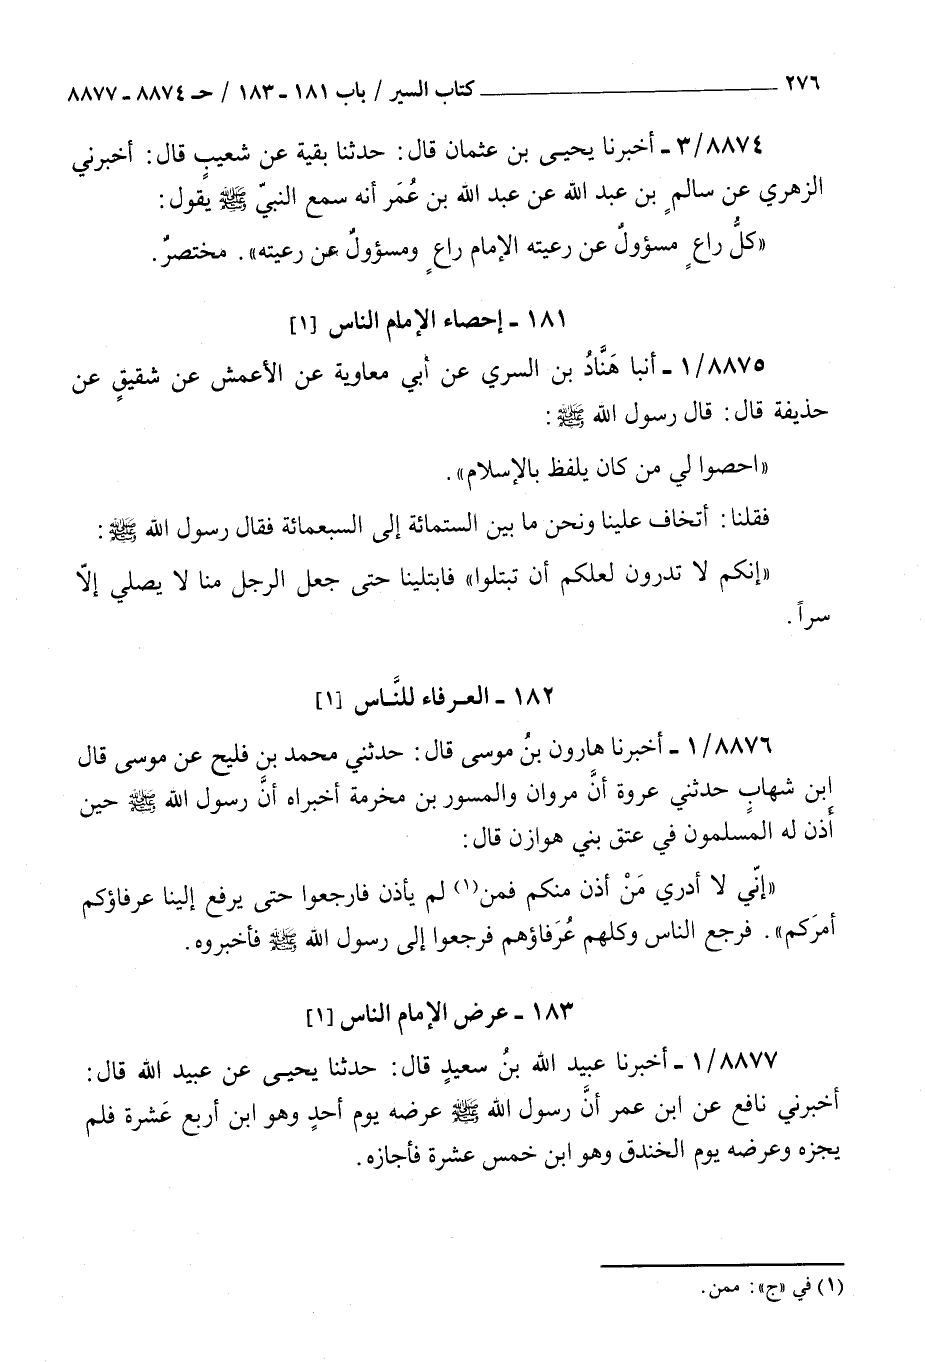 ٢٧٦ ــــــــــــــــ كتاب السير / باب ١٨١ - ١٨٣ / حـ ٨٨٧٤ - ٨٨٧٧
٣/٨٨٧٤ - أخبرنا يحيى بن عثمان قال: حدثنا بقية عن شعيبٍ قال: أخبرني
الزهري عن سالمٍ بن عبد الله عن عبد الله بن عُمَر أنه سمع النبيّ ﷺ يقول:
«كلُّ راعٍ مسؤولٌ عن رعيته الإمام راعٍ ومسؤولٌ عن رعيته». مختصرٌ.
١٨١ - إحصاء الإمام الناس [١]
١/٨٨٧٥ - أنبا هَنَّادُ بن السري عن أبي معاوية عن الأعمش عن شقيقٍ عن
حذيفة قال: قال رسول الله ﷺ:
«احصوا لي من كان يلفظ بالإسلام».
فقلنا: أتخاف علينا ونحن ما بين الستمائة إلى السبعمائة فقال رسول الله ﷺ:
«إنكم لا تدرون لعلكم أن تبتلوا» فابتلينا حتى جعل الرجل منا لا يصلي إلاّ
سراً.
١٨٢ - العرفاء للنَّاس [١]
١/٨٨٧٦ - أخبرنا هارون بنُ موسى قال: حدثني محمد بن فليح عن موسى قال
ابن شهابٍ حدثني عروة أنَّ مروان والمسور بن مخرمة أخبراه أنَّ رسول الله ﷺ حين
أَذن له المسلمون في عتق بني هوازن قال:
«إنّي لا أدري مَنْ أذن منكم فمن(١) لم يأذن فارجعوا حتى يرفع إلينا عرفاؤكم
أمرَكم». فرجع الناس وكلهم عُرَفاؤهم فرجعوا إلى رسول الله ﷺ فأخبروه.
١٨٣ - عرض الإمام الناس [١]
١/٨٨٧٧ - أخبرنا عبيد الله بنُ سعيدٍ قال: حدثنا يحيى عن عبيد الله قال:
أخبرني نافع عن ابن عمر أنَّ رسول الله ﷺ عرضه يوم أحدٍ وهو ابن أربع عَشرة فلم
يجزه وعرضه يوم الخندق وهو ابن خمس عشرة فأجازه.
(١) في «ج»: ممن.